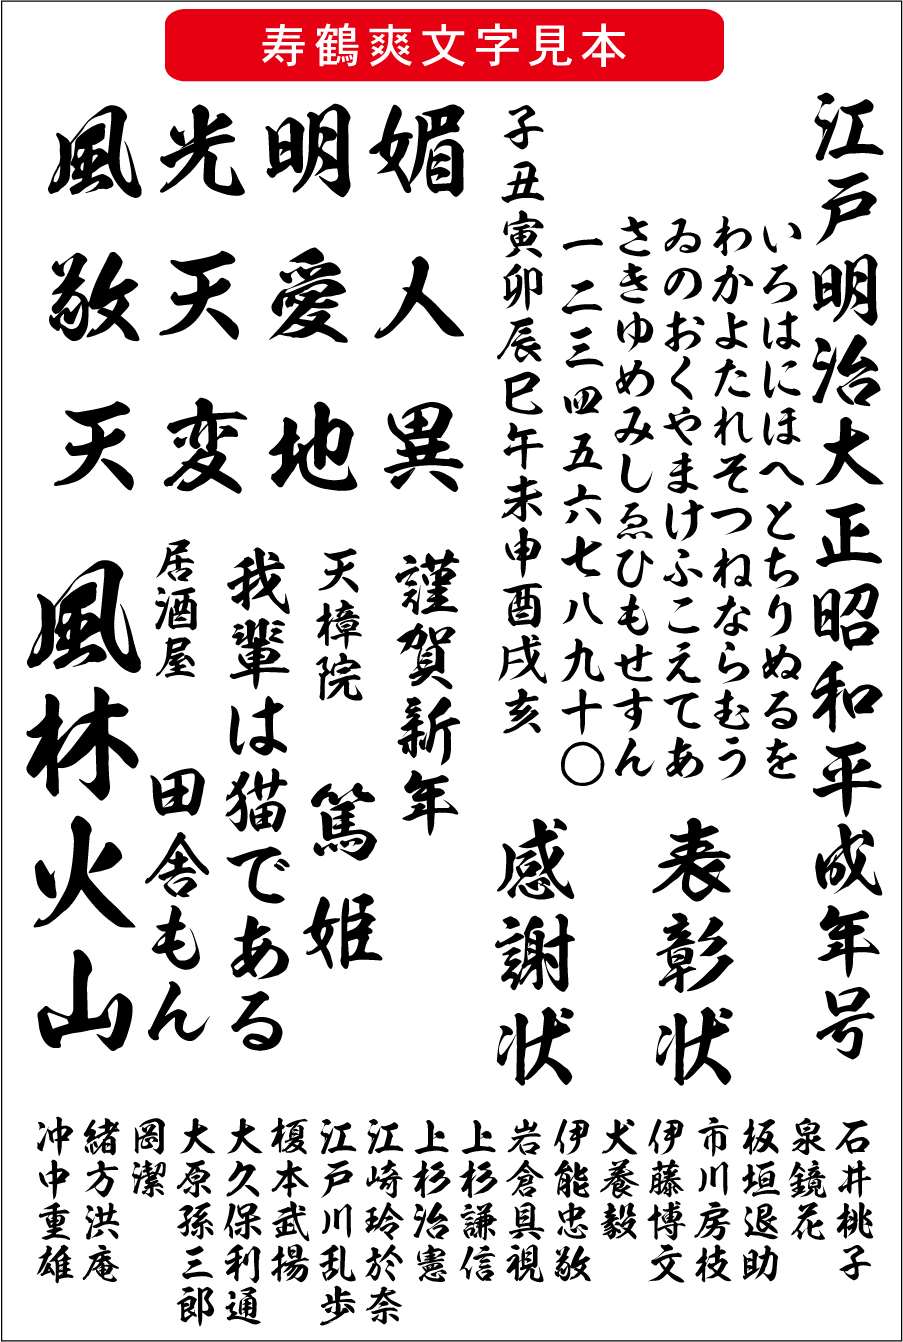 寿鶴爽文字見本
江戸明治大正昭和平成年号
いろはにほへとちりぬるを
わかよたれそつねならむう
ゐのおくやまけふこえてあ
さきゆめみしゑひもせすん
一二三四五六七八九十〇
子丑寅卯辰巳午未申酉戌亥
表彰状
感謝状
媚明光風
人愛天敬
異地変天
謹賀新年
天樟院
篤姫
我輩は猫である
居酒屋
田舎もん
風林火山
石井桃子
泉鏡花
板垣退助
市川房枝
伊藤博文
犬養毅
伊能忠敬
岩倉具視
上杉謙信
上杉治憲
江崎玲於奈
江戸川乱歩
榎本武揚
大久保利通
大原孫三郎
岡潔
緒方洪庵
冲中重雄